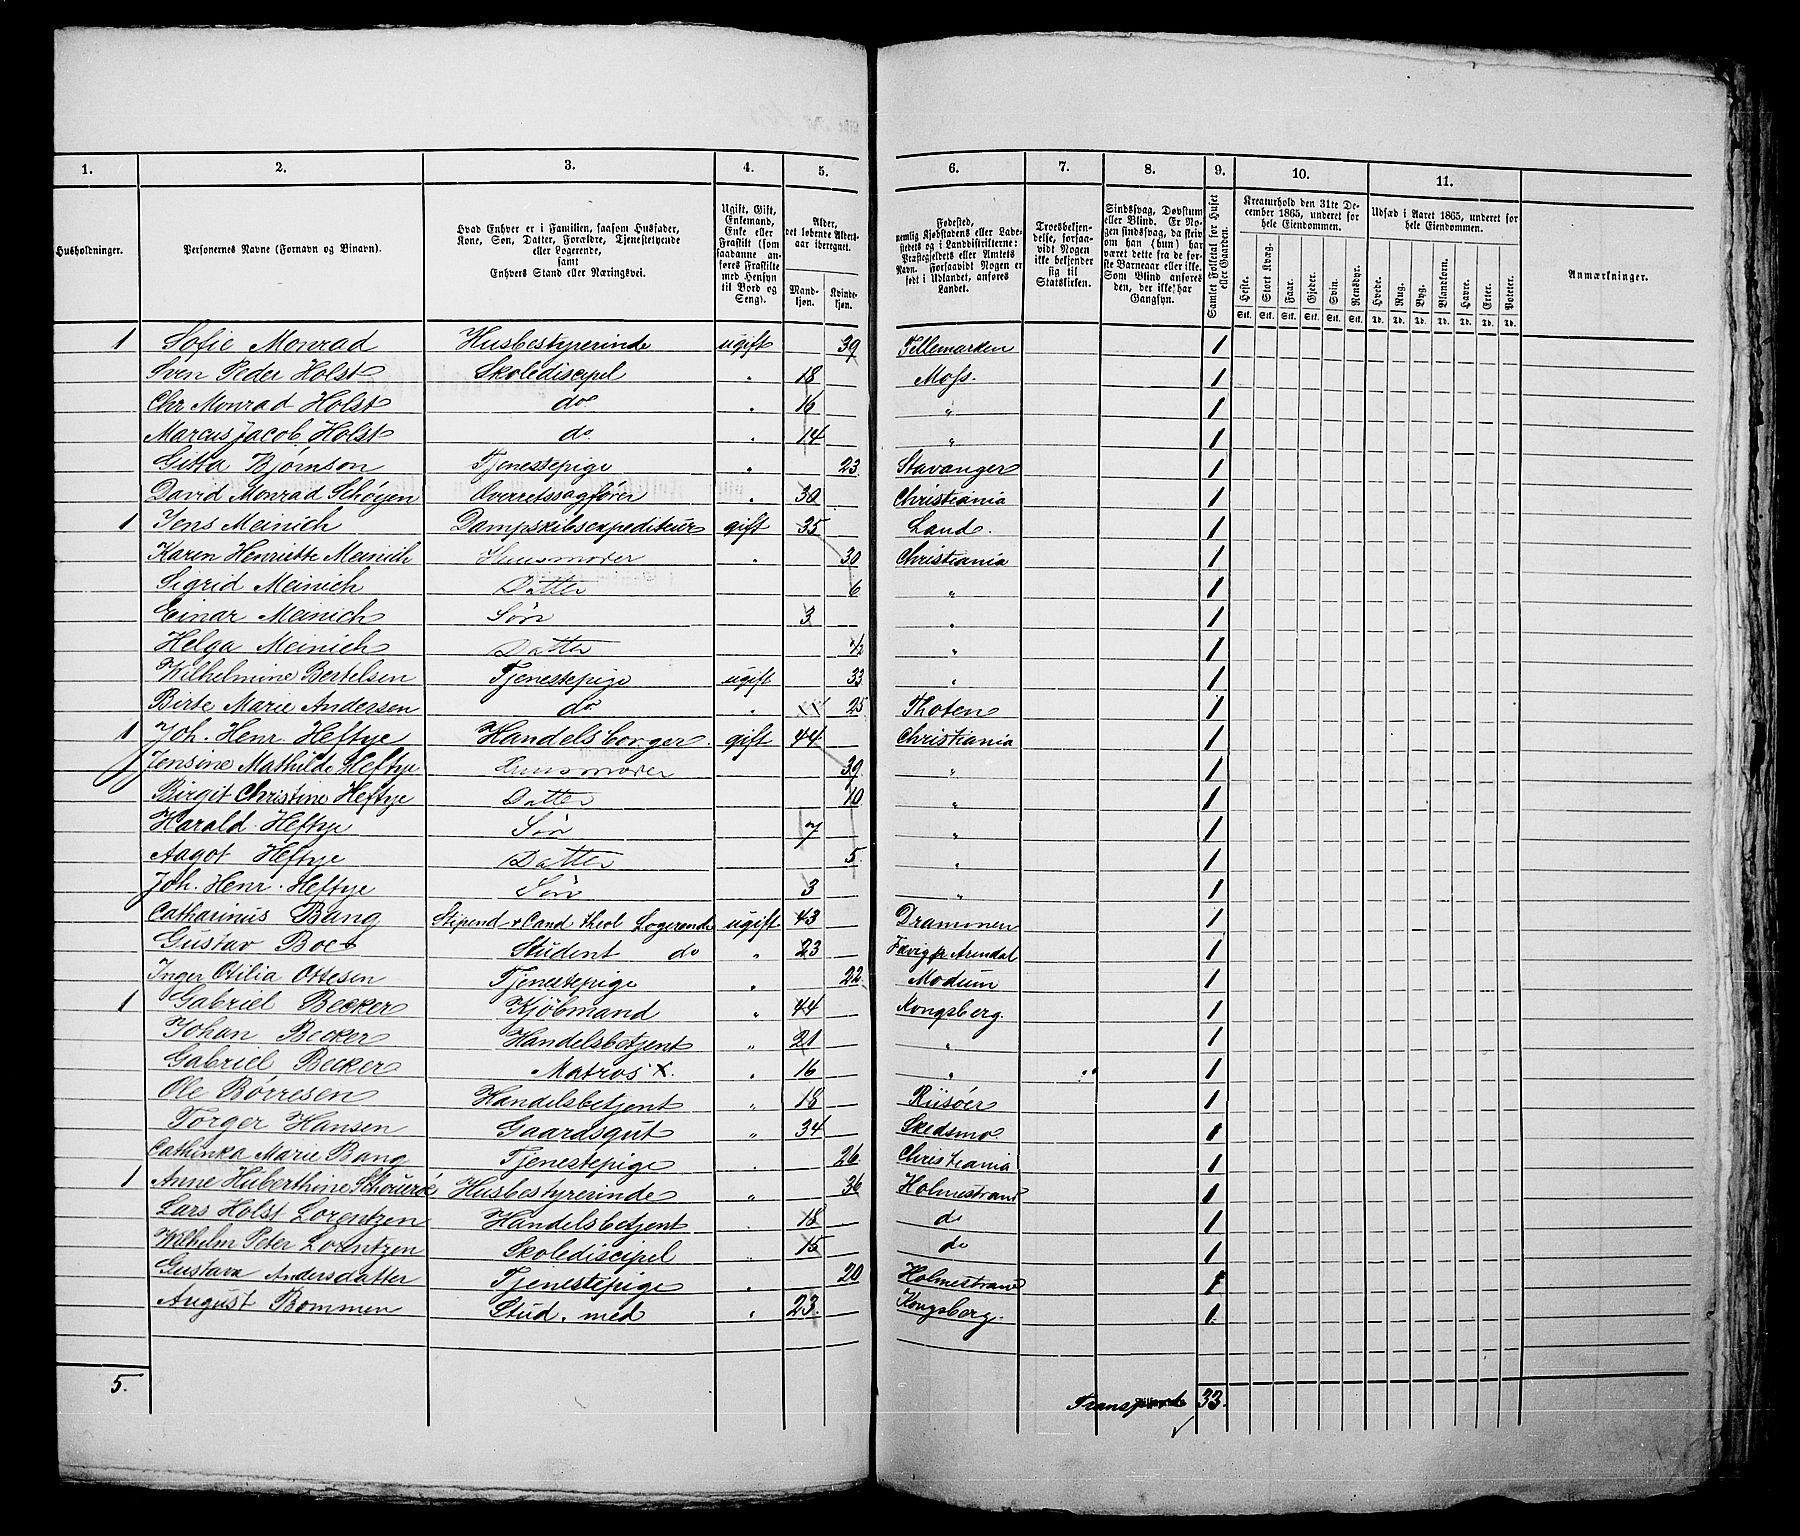 1. 2. 3. 4. 5. 6. 7. 8. 9. 10. 11.
Husholdninger.
Personernes Navne (Fornavn og Binavn).
Hvad Enhver er i Familien, saasom Husfader, Kone, Søn, Datter, Forældre, Tjenestetyende eller Logerende, samt Enhvers Stand eller Næringsvei.
Ugift, Gift, Enkemand, Enke eller Fraskilt (som saadanne anføres Fraskilte med Hensyn til Bord og Seng).
Alder, det løbende Aldersaar iberegnet.
Mandkjøn. Kvindekjøn.
Fødested, nemlig Kjøbstadens eller Ladestedets og i Landdistrikterne: Præstegjeldets eller Amtets Navn. Forsaavidt Nogen er født i Udlandet, anføres Landet.
Troesbekjendelse, forsaavidt Nogen ikke bekjender sig til Statskirken.
Sindssvag, Døvstum eller Blind. Er Nogen sindssvag, da skriv om han (hun) har været dette fra de første Barneaar eller ikke. Som Blind anføres den, der ikke har Gangsyn.
Samlet Folketal for Huset eller Gaarden.
Kreaturhold den 31te December 1865, underet for hele Eiendommen.
Heste. Stort Kvæg. Faar. Gjeder. Svin. Rensdyr.
Stk. Stk. Stk. Stk. Stk. Stk.
Udsæd i Aaret 1865, underet for hele Eiendommen.
Hvede. Rug. Byg. Blandkorn. Havre. Erter. Poteter.
Td. Td. Td. Td. Td. Td. Td.
Anmærkninger.
1 Sofie Monrad Husbestyrerinde ugift 39 Tellemarken 1
Sven Peder Holst Skolediscipel " 18 Moss. 1
Chr Monrad Holst do " 16 " 1
Marcus Jacob Holst do " 14 " 1
Gitta Bjørnson Tjenestepige " 23 Stavanger 1
David Monrad Schøyen Overretssagfører " 30 Christiania 1
1 Jens Meinich Dampskibsexpediteur gift 35 Land. 1
Karen Henriette Meinich Huusmoder " 30 Christiania 1
Sigrid Meinich Datter 6 " 1
Einar Meinich Søn 3 " 1
Helga Meinich Datter 1/2 " 1
Wilhelmine Bertelsen Tjenestepige ugift 33 " 1
Birte Marie Andersen do " 25 Thoten 1
1 Joh. Henr. Heftye Handelsborger gift 44 Christiania 1
Jensine Mathilde Heftye Huusmoder 39 " 1
Birgit Christine Heftye Datter 10 " 1
Harald Heftye Søn 7 " 1
Aagot Heftye Datter 5 " 1
Joh. Henr. Heftye Søn 3 " 1
Catharinus Bang Stipend & Cand theol Logerende ugift 43 Drammen 1
Gustav Student do " 23 Arendal 1
Inger Otilia Ottesen Tjenestepige " 22 Modum 1
1 Gabriel Becker Kjøbmand " 44 Kongsberg. 1
Johan Becker Handelsbetjent " 21 " 1
Gabriel Becker Matros X. " 16 " 1
Ole Børresen Handelsbetjent " 18 Riisøer 1
Torger Hansen Gaardsgut " 34 Skedsmo 1
Cathinka Marie Bang Tjenestepige " 26 Christiania 1
1 Anne Huberthine Husbestyrerinde " 36 Holmestrand 1
Lars Holst Lorentzen Handelsbetjent " 18 do 1
Wilhelm Peter Lorentzen Skolediscipel " 15 do 1
Gustava Andersdatter Tjenestepige " 20 Holmestrand 1
August Bommen Stud. med " 23 Kongsberg. 1
5. Transport 33.